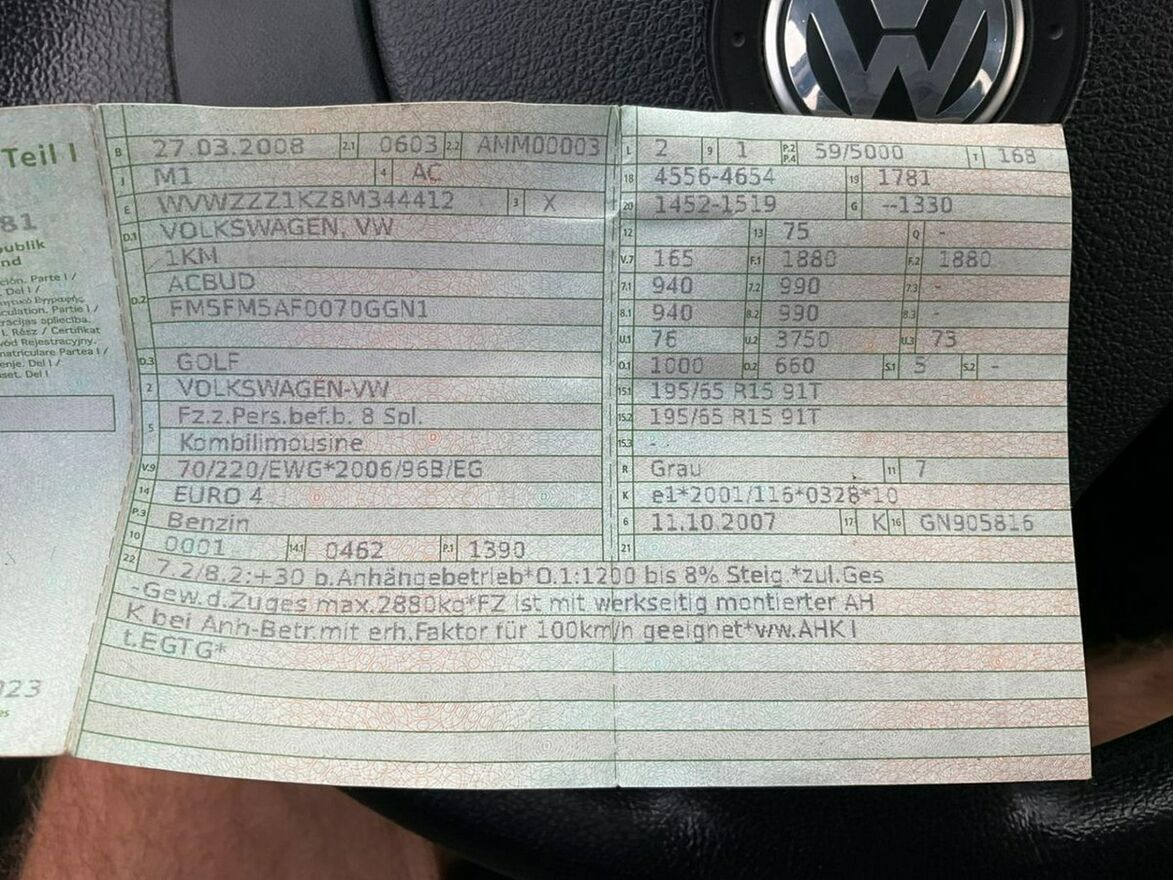 Teil I
B 27.03.2008 2.1 0603 2.2 AMM00003
J M1 4 AC
E WVWZZZ1KZ8M344412 3 X
D.1 VOLKSWAGEN, VW
1KM
D.2 ACBUD
FM5FM5AF0070GGN1
D.3 GOLF
2 VOLKSWAGEN-VW
5 Fz.z.Pers.bef.b. 8 Spl.
Kombilimousine
V.9 70/220/EWG*2006/96B/EG
14 EURO 4
P.3 Benzin
10 0001 14.1 0462 P.1 1390
L 2 9 1 P.2 P.4 59/5000 T 168
18 4556-4654 19 1781
20 1452-1519 G --1330
12 13 75 Q -
V.7 165 F.1 1880 F.2 1880
7.1 940 7.2 990 7.3 -
8.1 940 8.2 990 8.3 -
U.1 76 U.2 3750 U.3 73
O.1 1000 O.2 660 S.1 5 S.2 -
15.1 195/65 R15 91T
15.2 195/65 R15 91T
15.3 - -
R Grau 11 7
K e1*2001/116*0328*10
6 11.10.2007 17 K 16 GN905816
21
22 7.2/8.2:+30 b.Anhängebetrieb*O.1:1200 bis 8% Steig.*zul.Ges
-Gew.d.Zuges max.2880kg*FZ ist mit werkseitig montierter AH
K bei Anh-Betr.mit erh.Faktor für 100km/h geeignet*ww.AHK l
t.EGTG*
81
publik
nd
ción. Parte I /
. Del I /
culation. Partie I /
rācijas apliecība.
I. Rész / Certifikat
vód Rejestracyjny.
matriculare Partea I /
enje. Del I /
set. Del I
023
es